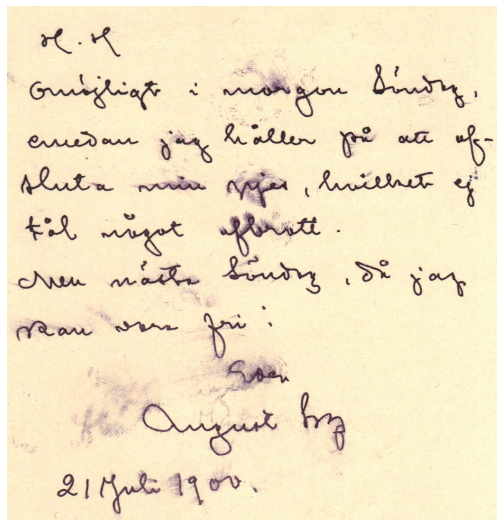 H. H
Omöjligt i morgon Söndag,
emedan jag håller på att af-
sluta min pjes, hvilket ej
tål något afbrott.
Men nästa Söndag, då jag
kan vara fri!
Eder
August Sbg
21 Juli 1900.